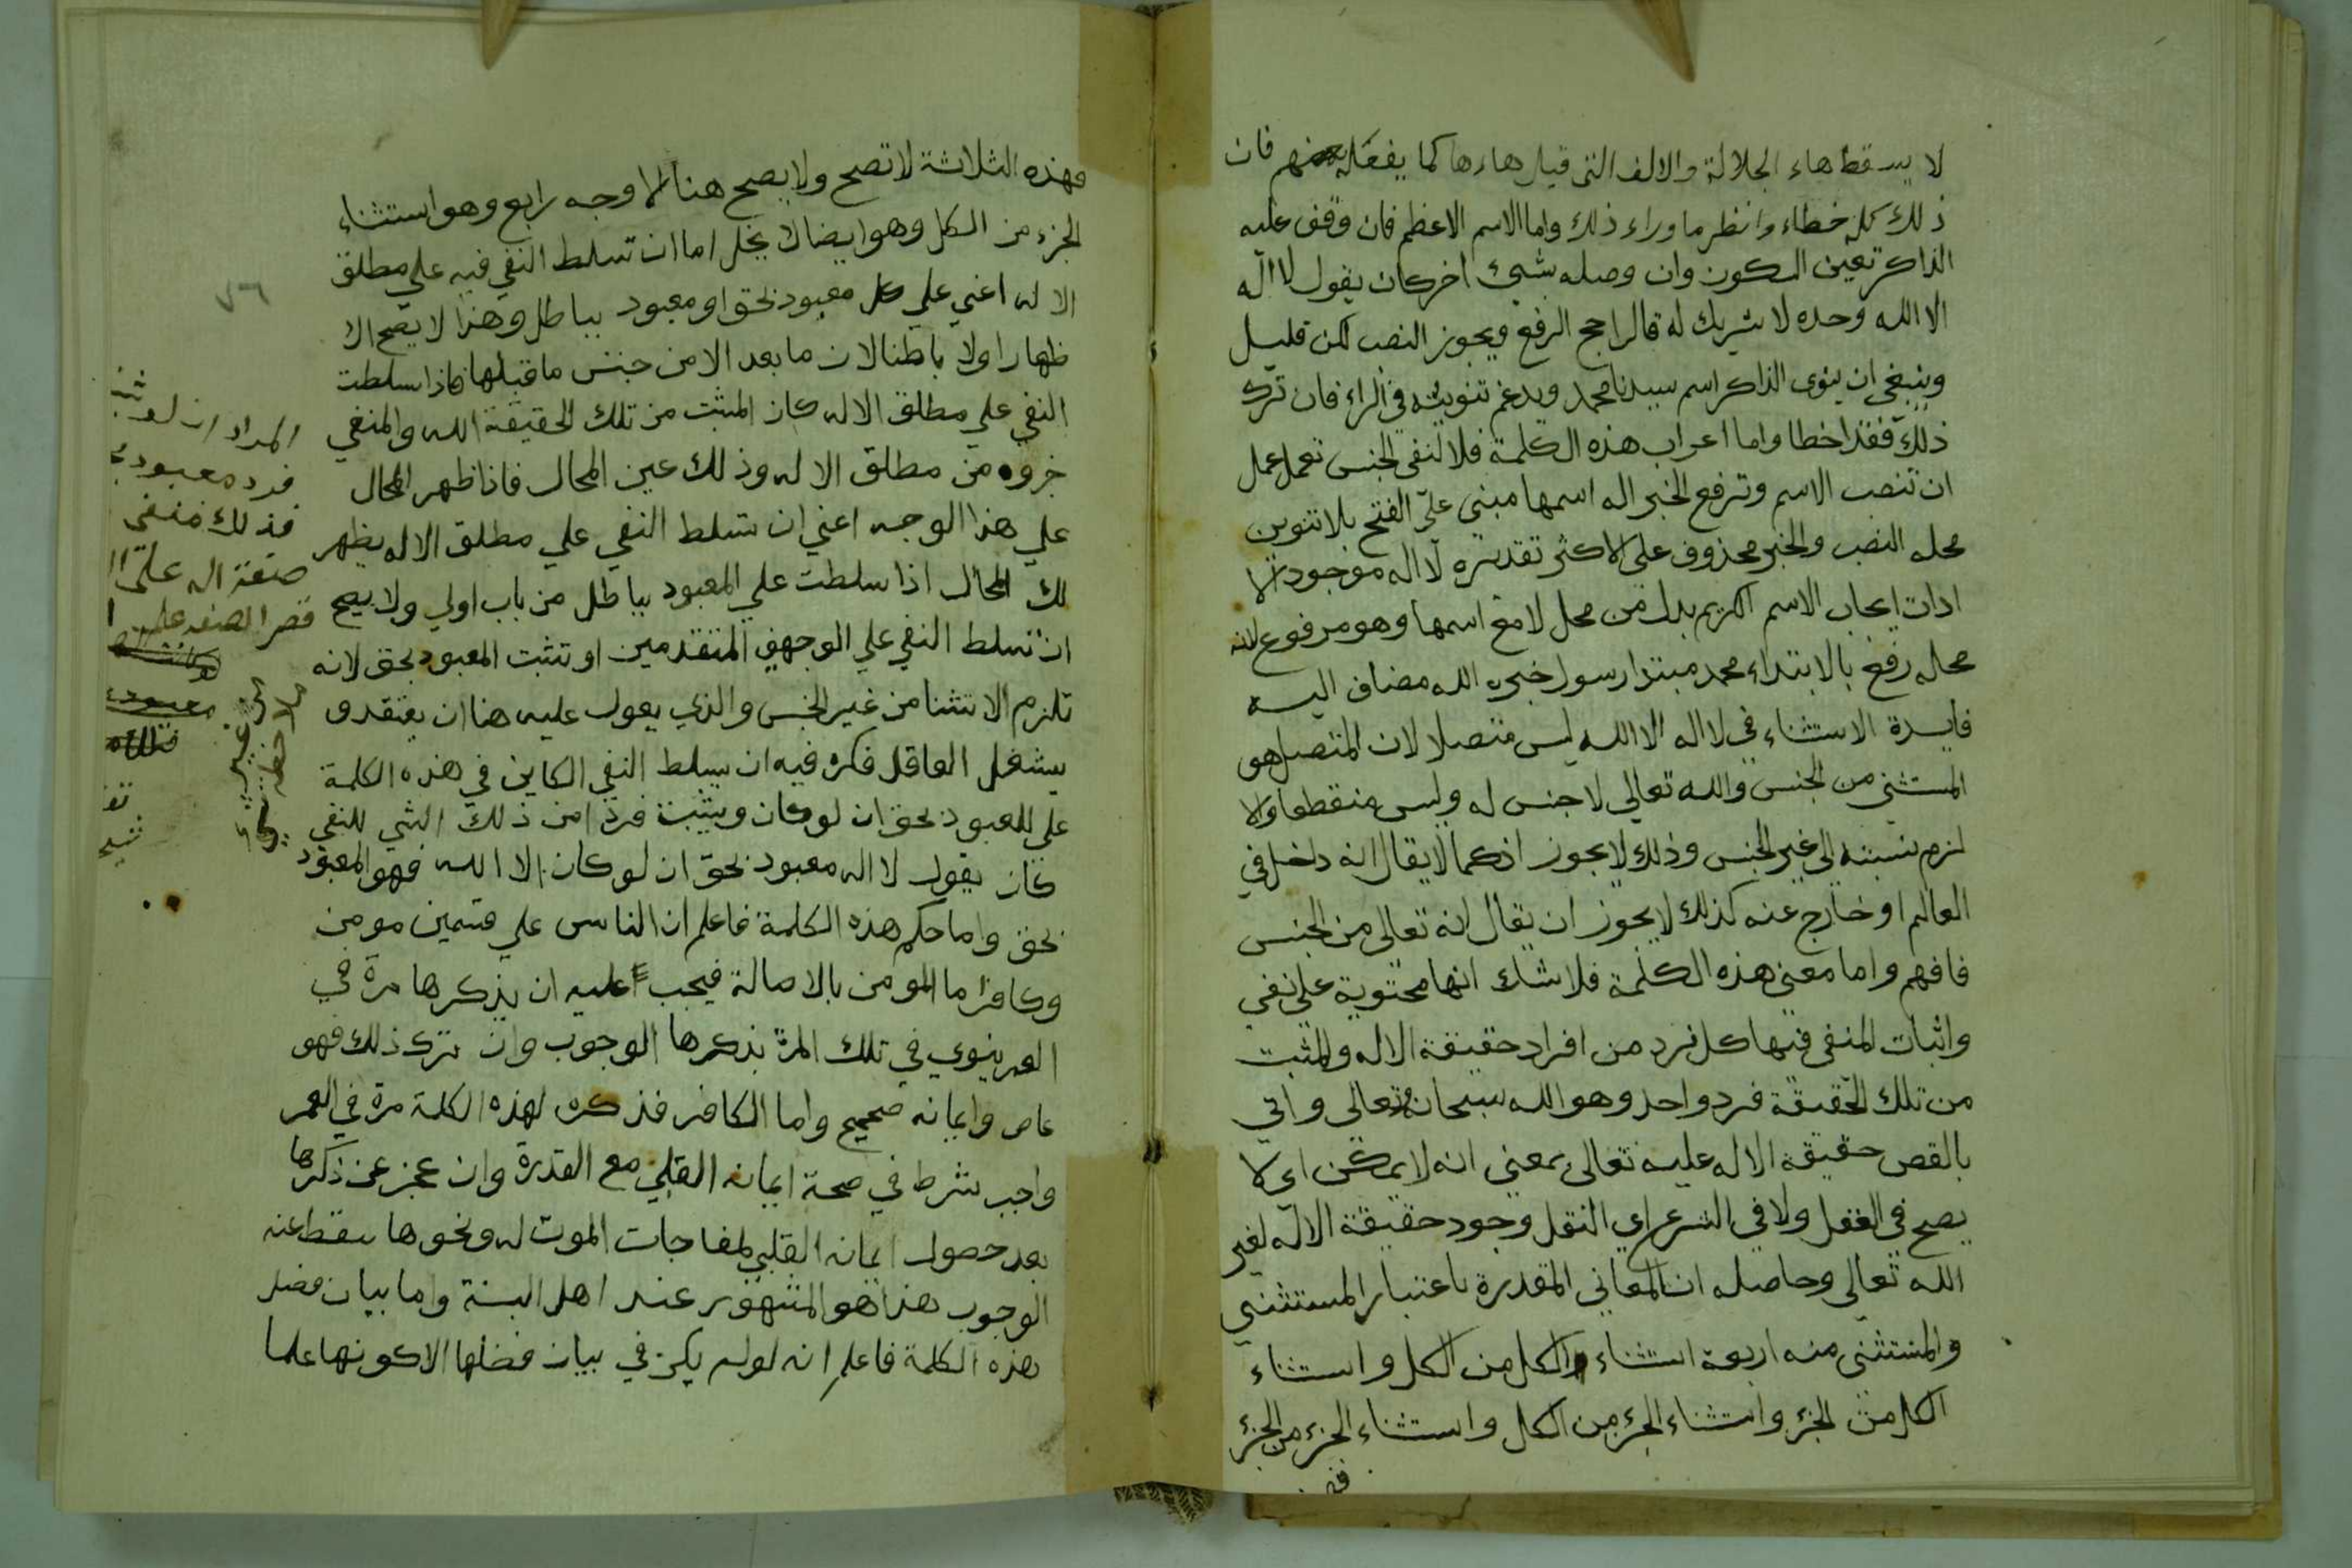 لا يسقط هاء الجلالة والالف التى قبل هاءها كما يفعله بعضهم فان
ذلك كله خطاء وانظر ما وراء ذلك واما الاسم الاعظم فان وقف عليه
الذاكر تعين السكون وان وصله بشيئ اخر كان يقول لا اله
الا الله وحده لا شريك له فالراجح الرفع ويجوز النصب لكن قليل
وينبغي ان ينوى الذاكر اسم سيدنا محمد ويدغم تنوينه في الراء فان ترك
ذلك فقد اخطا واما اعراب هذه الكلمة فلا لنفى الجنس تعمل عمل
ان تنصب الاسم وترفع الخبر اله اسمها مبنى على الفتح بلا تنوين
محله النصب والخبر محذوف على الاكثر تقديره لا اله موجود الا
ادات ايجاب الاسم الكريم بدل من محل لا مع اسمها وهو مرفوع لانه
محله رفع بالابتداء محمد مبتدا رسول خبره الله مضاف اليه
فايدة الاستثناء في لا اله الا الله ليس متصلا لان المتصل هو
المستثنى من الجنس والله تعالي لا جنس له وليس منقطعا والا
لزم نسبته الى غير الجنس وذلك لا يجوز اذ كما لا يقال انه داخل في
العالم او خارج عنه كذلك لا يجوز ان يقال انه تعالى من الجنس
فافهم واما معنى هذه الكلمة فلا شك انها محتوية على نفي
واثبات المنفى فيها كل فرد من افراد حقيقة الاله والمثبت
من تلك الحقيقة فرد واحد وهو الله سبحانه وتعالى واتى
بالقصر حقيقة الاله عليه تعالى بمعنى انه لا يمكن اى لا
يصح في العقل ولا في الشرع اي النقل وجود حقيقة الاله لغير
الله تعالى وحاصله ان المعاني المقدرة باعتبار المستثنى
والمستثنى منه اربعة استثناء الكل من الكل واستثناء
الكل من الجزء واستثناء الجزء من الكل واستثناء الجزء من الجزء
فهذه الثلاثة لا تصح ولا يصح هنا الا وجه رابع وهو استثناء
الجزء من الكل وهو ايضا لا يخل اما ان تسلط النفي فيه علي مطلق
الاله اعني علي كل معبود بحق او معبود بباطل وهذا لا يصح لا
ظهارا ولا باطنا لان ما بعد الا من جنس ما قبلها فاذا سلطت
النفي علي مطلق الاله كان المثبت من تلك الحقيقة الله والمنفي
خروه من مطلق الاله وذلك عين المحال فاذا ظهر المحال
علي هذا الوجه اعني ان تسلط النفي علي مطلق الاله يظهر
لك المحال اذا سلطت علي المعبود بباطل من باب اولي ولا يصح
ان تسلط النفي علي الوجهين المتقدمين او تثبت المعبود بحق لانه
تلزم الاستثنا من غير الجنس والذي يعول عليه هنا ان يعتقد و
يشغل العاقل فكره فيه ان يسلط النفي الكاين في هذه الكلمة
علي المعبود بحق ان لو كان ويثبت فردا من ذلك الشي المنفي
كان يقول لا اله معبود بحق ان لو كان الا الله فهو المعبود
بحق واما حكم هذه الكلمة فاعلم ان الناس علي قسمين مومن
وكافر اما المومن بالاصالة فيجب عليه ان يذكرها مرة في
العمر ينوي في تلك المرة بذكرها الوجوب وان ترك ذلك فهو
عاص وايمانه صحيح واما الكافر فذكره لهذه الكلمة مرة في العمر
واجب شرط في صحة ايمانه القلبي مع القدرة وان عجز عن ذكرها
بعد حصول ايمانه القلبي لمفاجات الموت له ونحوها سقط عنه
الوجوب هذا هو المشهور عند اهل السنة واما بيان فضل
هذه الكلمة فاعلم انه لو لم يكن في بيان فضلها الا كونها علما
٧٦
المراد ان لو
فرد معبود
فذلك منفي
صفة اله على
قصر الصفة على